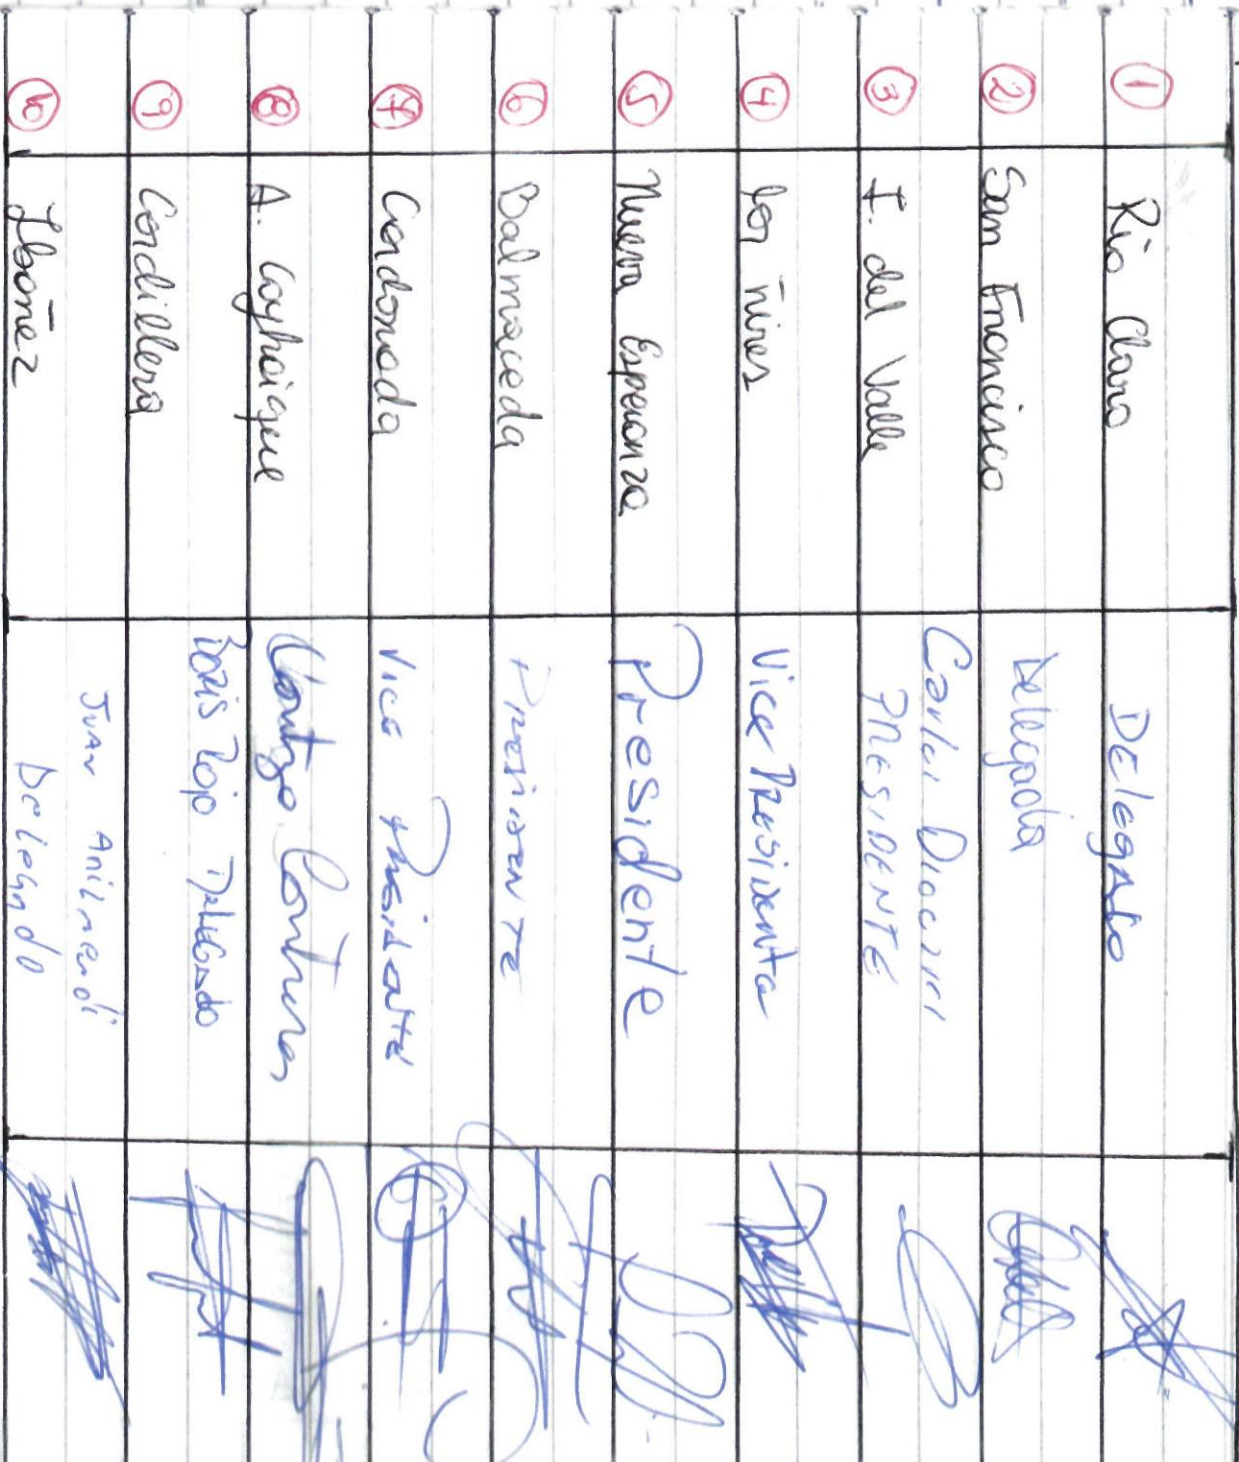 ① Río Claro DELEGADO
② San Francisco Delegada
③ I. del Valle Carlos
PRESIDENTE
④ los ñires Vice Presidenta
⑤ Nueva Esperanza Presidente
⑥ Balmaceda Presidente
⑦ Condonada Vice Presidente
⑧ A. Coyhaique Contreras
⑨ Cordillera Rojo Delegado
⑩ Ibañez Juan
Delegado